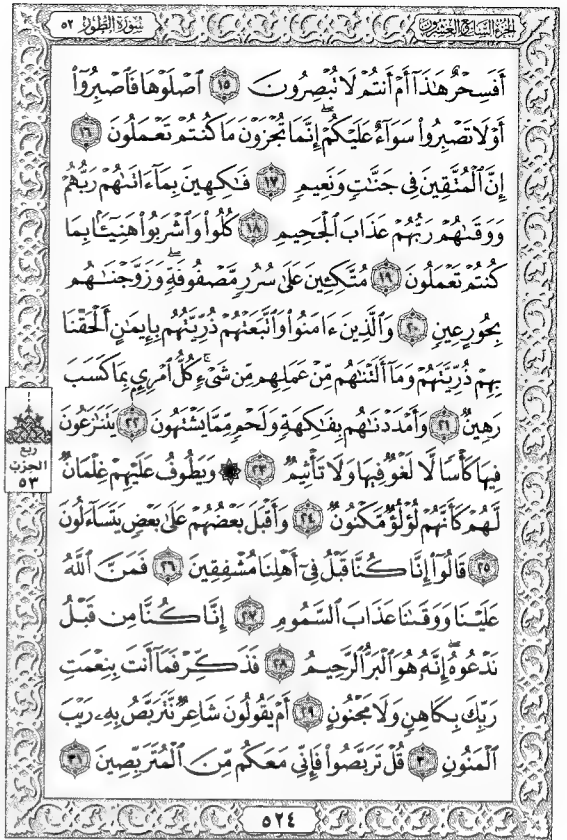 سُورَةُ الطُّورِ ٥٢
الجُزْءُ السَّابِعُ وَالعِشْرُونَ
أَفَسِحْرٌ هَٰذَآ أَمْ أَنتُمْ لَا تُبْصِرُونَ ١٥ ٱصْلَوْهَا فَٱصْبِرُوٓا۟
أَوْ لَا تَصْبِرُوا۟ سَوَآءٌ عَلَيْكُمْ ۖ إِنَّمَا تُجْزَوْنَ مَا كُنتُمْ تَعْمَلُونَ ١٦
إِنَّ ٱلْمُتَّقِينَ فِى جَنَّٰتٍ وَنَعِيمٍ ١٧ فَٰكِهِينَ بِمَآ ءَاتَىٰهُمْ رَبُّهُمْ
وَوَقَىٰهُمْ رَبُّهُمْ عَذَابَ ٱلْجَحِيمِ ١٨ كُلُوا۟ وَٱشْرَبُوا۟ هَنِيٓـًٔۢا بِمَا
كُنتُمْ تَعْمَلُونَ ١٩ مُتَّكِـِٔينَ عَلَىٰ سُرُرٍ مَّصْفُوفَةٍ ۖ وَزَوَّجْنَٰهُم
بِحُورٍ عِينٍ ٢٠ وَٱلَّذِينَ ءَامَنُوا۟ وَٱتَّبَعَتْهُمْ ذُرِّيَّتُهُم بِإِيمَٰنٍ أَلْحَقْنَا
بِهِمْ ذُرِّيَّتَهُمْ وَمَآ أَلَتْنَٰهُم مِّنْ عَمَلِهِم مِّن شَىْءٍ ۚ كُلُّ ٱمْرِئٍۭ بِمَا كَسَبَ
رَهِينٌ ٢١ وَأَمْدَدْنَٰهُم بِفَٰكِهَةٍ وَلَحْمٍ مِّمَّا يَشْتَهُونَ ٢٢ يَتَنَٰزَعُونَ
فِيهَا كَأْسًا لَّا لَغْوٌ فِيهَا وَلَا تَأْثِيمٌ ٢٣ ۞ وَيَطُوفُ عَلَيْهِمْ غِلْمَانٌ
لَّهُمْ كَأَنَّهُمْ لُؤْلُؤٌ مَّكْنُونٌ ٢٤ وَأَقْبَلَ بَعْضُهُمْ عَلَىٰ بَعْضٍ يَتَسَآءَلُونَ
٢٥ قَالُوٓا۟ إِنَّا كُنَّا قَبْلُ فِىٓ أَهْلِنَا مُشْفِقِينَ ٢٦ فَمَنَّ ٱللَّهُ
عَلَيْنَا وَوَقَىٰنَا عَذَابَ ٱلسَّمُومِ ٢٧ إِنَّا كُنَّا مِن قَبْلُ
نَدْعُوهُ ۖ إِنَّهُۥ هُوَ ٱلْبَرُّ ٱلرَّحِيمُ ٢٨ فَذَكِّرْ فَمَآ أَنتَ بِنِعْمَتِ
رَبِّكَ بِكَاهِنٍ وَلَا مَجْنُونٍ ٢٩ أَمْ يَقُولُونَ شَاعِرٌ نَّتَرَبَّصُ بِهِۦ رَيْبَ
ٱلْمَنُونِ ٣٠ قُلْ تَرَبَّصُوا۟ فَإِنِّى مَعَكُم مِّنَ ٱلْمُتَرَبِّصِينَ ٣١
ربع
الحزب
٥٣
٥٢٤